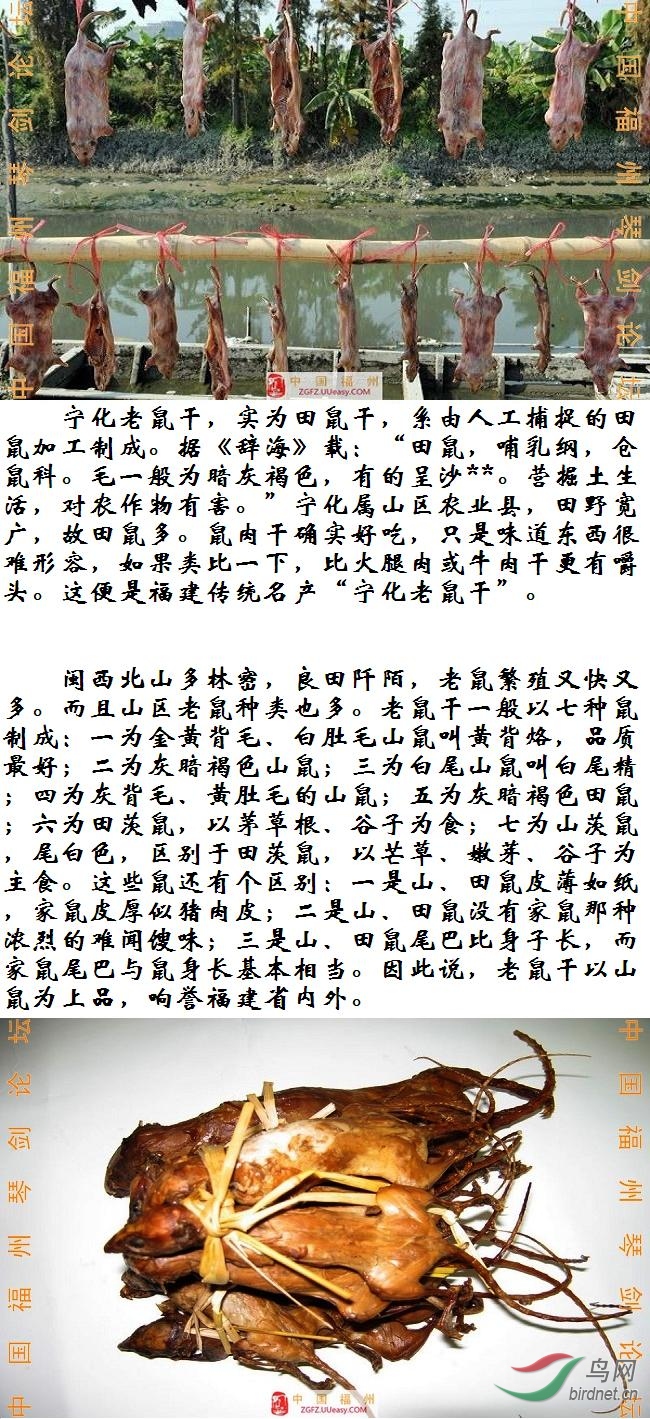 中国福州琴剑论坛
中国福州琴剑论坛
中国福州
ZGFZ.UUeasy.COM
宁化老鼠干，实为田鼠干，系由人工捕捉的田
鼠加工制成。据《辞海》载：“田鼠，哺乳纲，仓
鼠科。毛一般为暗灰褐色，有的呈沙**。营掘土生
活，对农作物有害。”宁化属山区农业县，田野宽
广，故田鼠多。鼠肉干确实好吃，只是味道东西很
难形容，如果类比一下，比火腿肉或牛肉干更有嚼
头。这便是福建传统名产“宁化老鼠干”。
闽西北山多林密，良田阡陌，老鼠繁殖又快又
多。而且山区老鼠种类也多。老鼠干一般以七种鼠
制成：一为金黄背毛、白肚毛山鼠叫黄背烙，品质
最好；二为灰暗褐色山鼠；三为白尾山鼠叫白尾精
；四为灰背毛、黄肚毛的山鼠；五为灰暗褐色田鼠
；六为田茨鼠，以茅草根、谷子为食；七为山茨鼠
，尾白色，区别于田茨鼠，以芒草、嫩芽、谷子为
主食。这些鼠还有个区别：一是山、田鼠皮薄如纸
，家鼠皮厚似猪肉皮；二是山、田鼠没有家鼠那种
浓烈的难闻馊味；三是山、田鼠尾巴比身子长，而
家鼠尾巴与鼠身长基本相当。因此说，老鼠干以山
鼠为上品，响誉福建省内外。
中国福州琴剑论坛
中国福州琴剑论坛
中国福州
ZGFZ.UUeasy.COM
鸟网
birdnet.cn